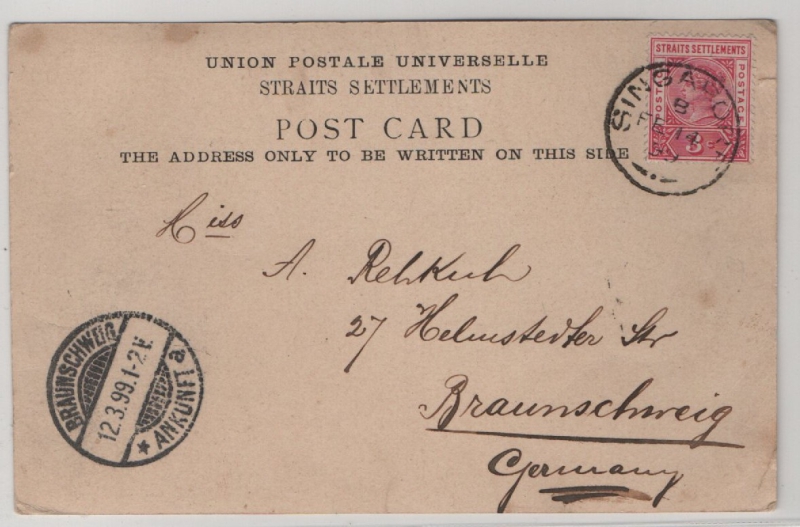 UNION POSTALE UNIVERSELLE
STRAITS SETTLEMENTS
POST CARD
THE ADDRESS ONLY TO BE WRITTEN ON THIS SIDE
STRAITS SETTLEMENTS
POSTAGE
POSTAGE
3
SINGAPORE
B
FE 14
99
Miss
A. Rehkuh
27 Helmstedter Str
Braunschweig
Germany
BRAUNSCHWEIG
12.3.99.1-2.V.
* ANKUNFT a.